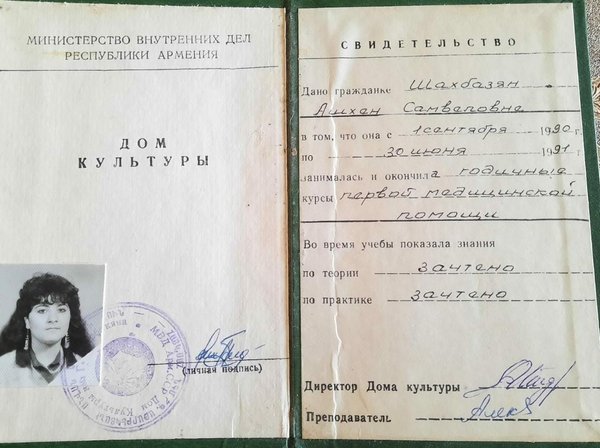 МИНИСТЕРСТВО ВНУТРЕННИХ ДЕЛ
РЕСПУБЛИКИ АРМЕНИЯ
ДОМ
КУЛЬТУРЫ
(личная подпись)
СВИДЕТЕЛЬСТВО
Дано гражданке Шахбазян
Ашхен Самвеловне
в том, что она с 1 сентября 1990
по 30 июня 1991
занималась и окончила годичные
курсы первой медицинской
помощи
Во время учебы показала знания
по теории зачтено
по практике зачтено
Директор Дома культуры
Преподаватель